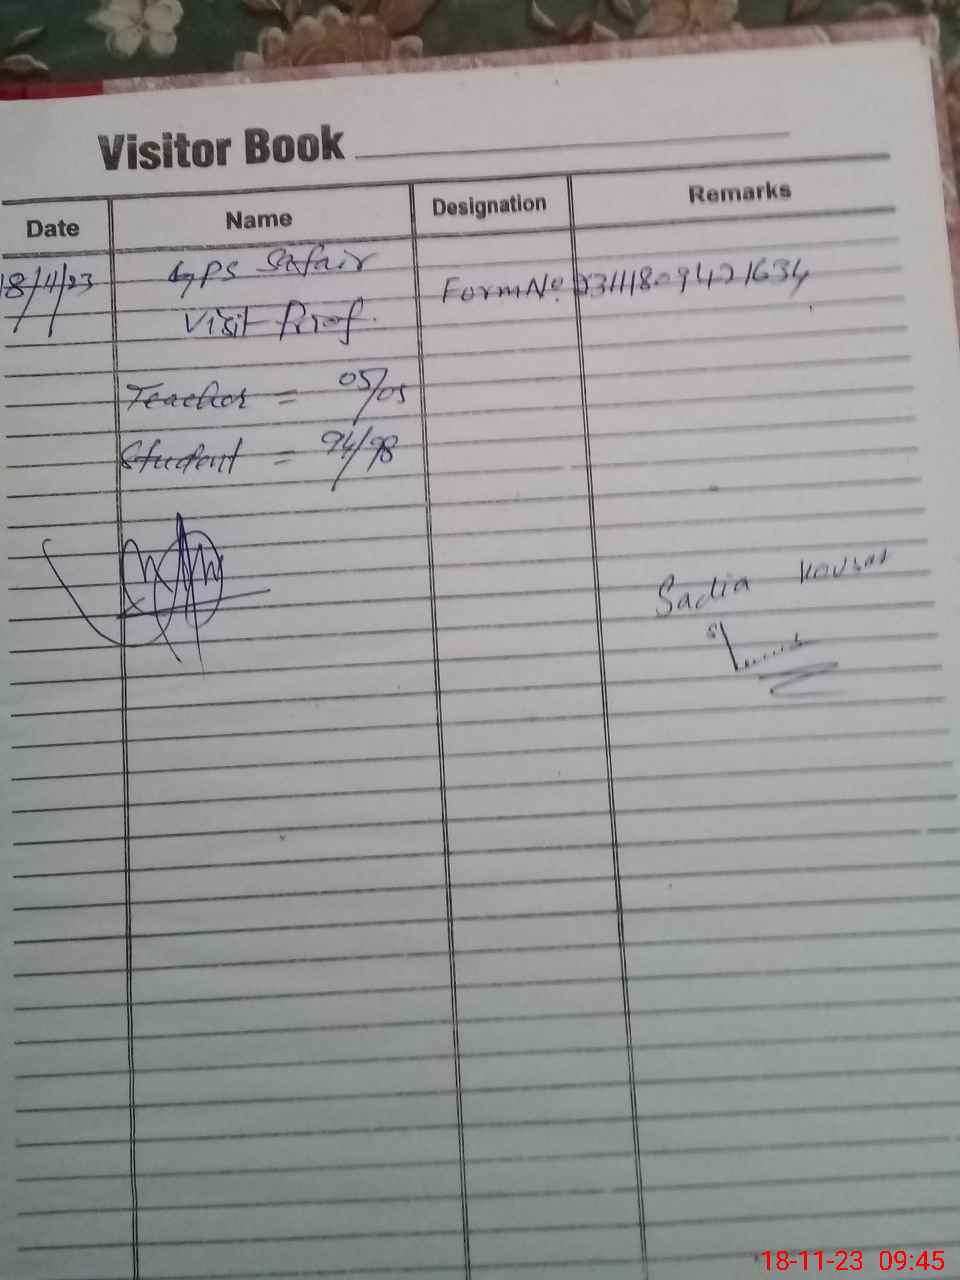 Visitor Book
Date Name Designation Remarks
18/11/23 GPS Safair Form No. 23111809421634
Visit Prof.
Teacher = 05/05
Student = 94/98
Sadia Kousar
18-11-23 09:45